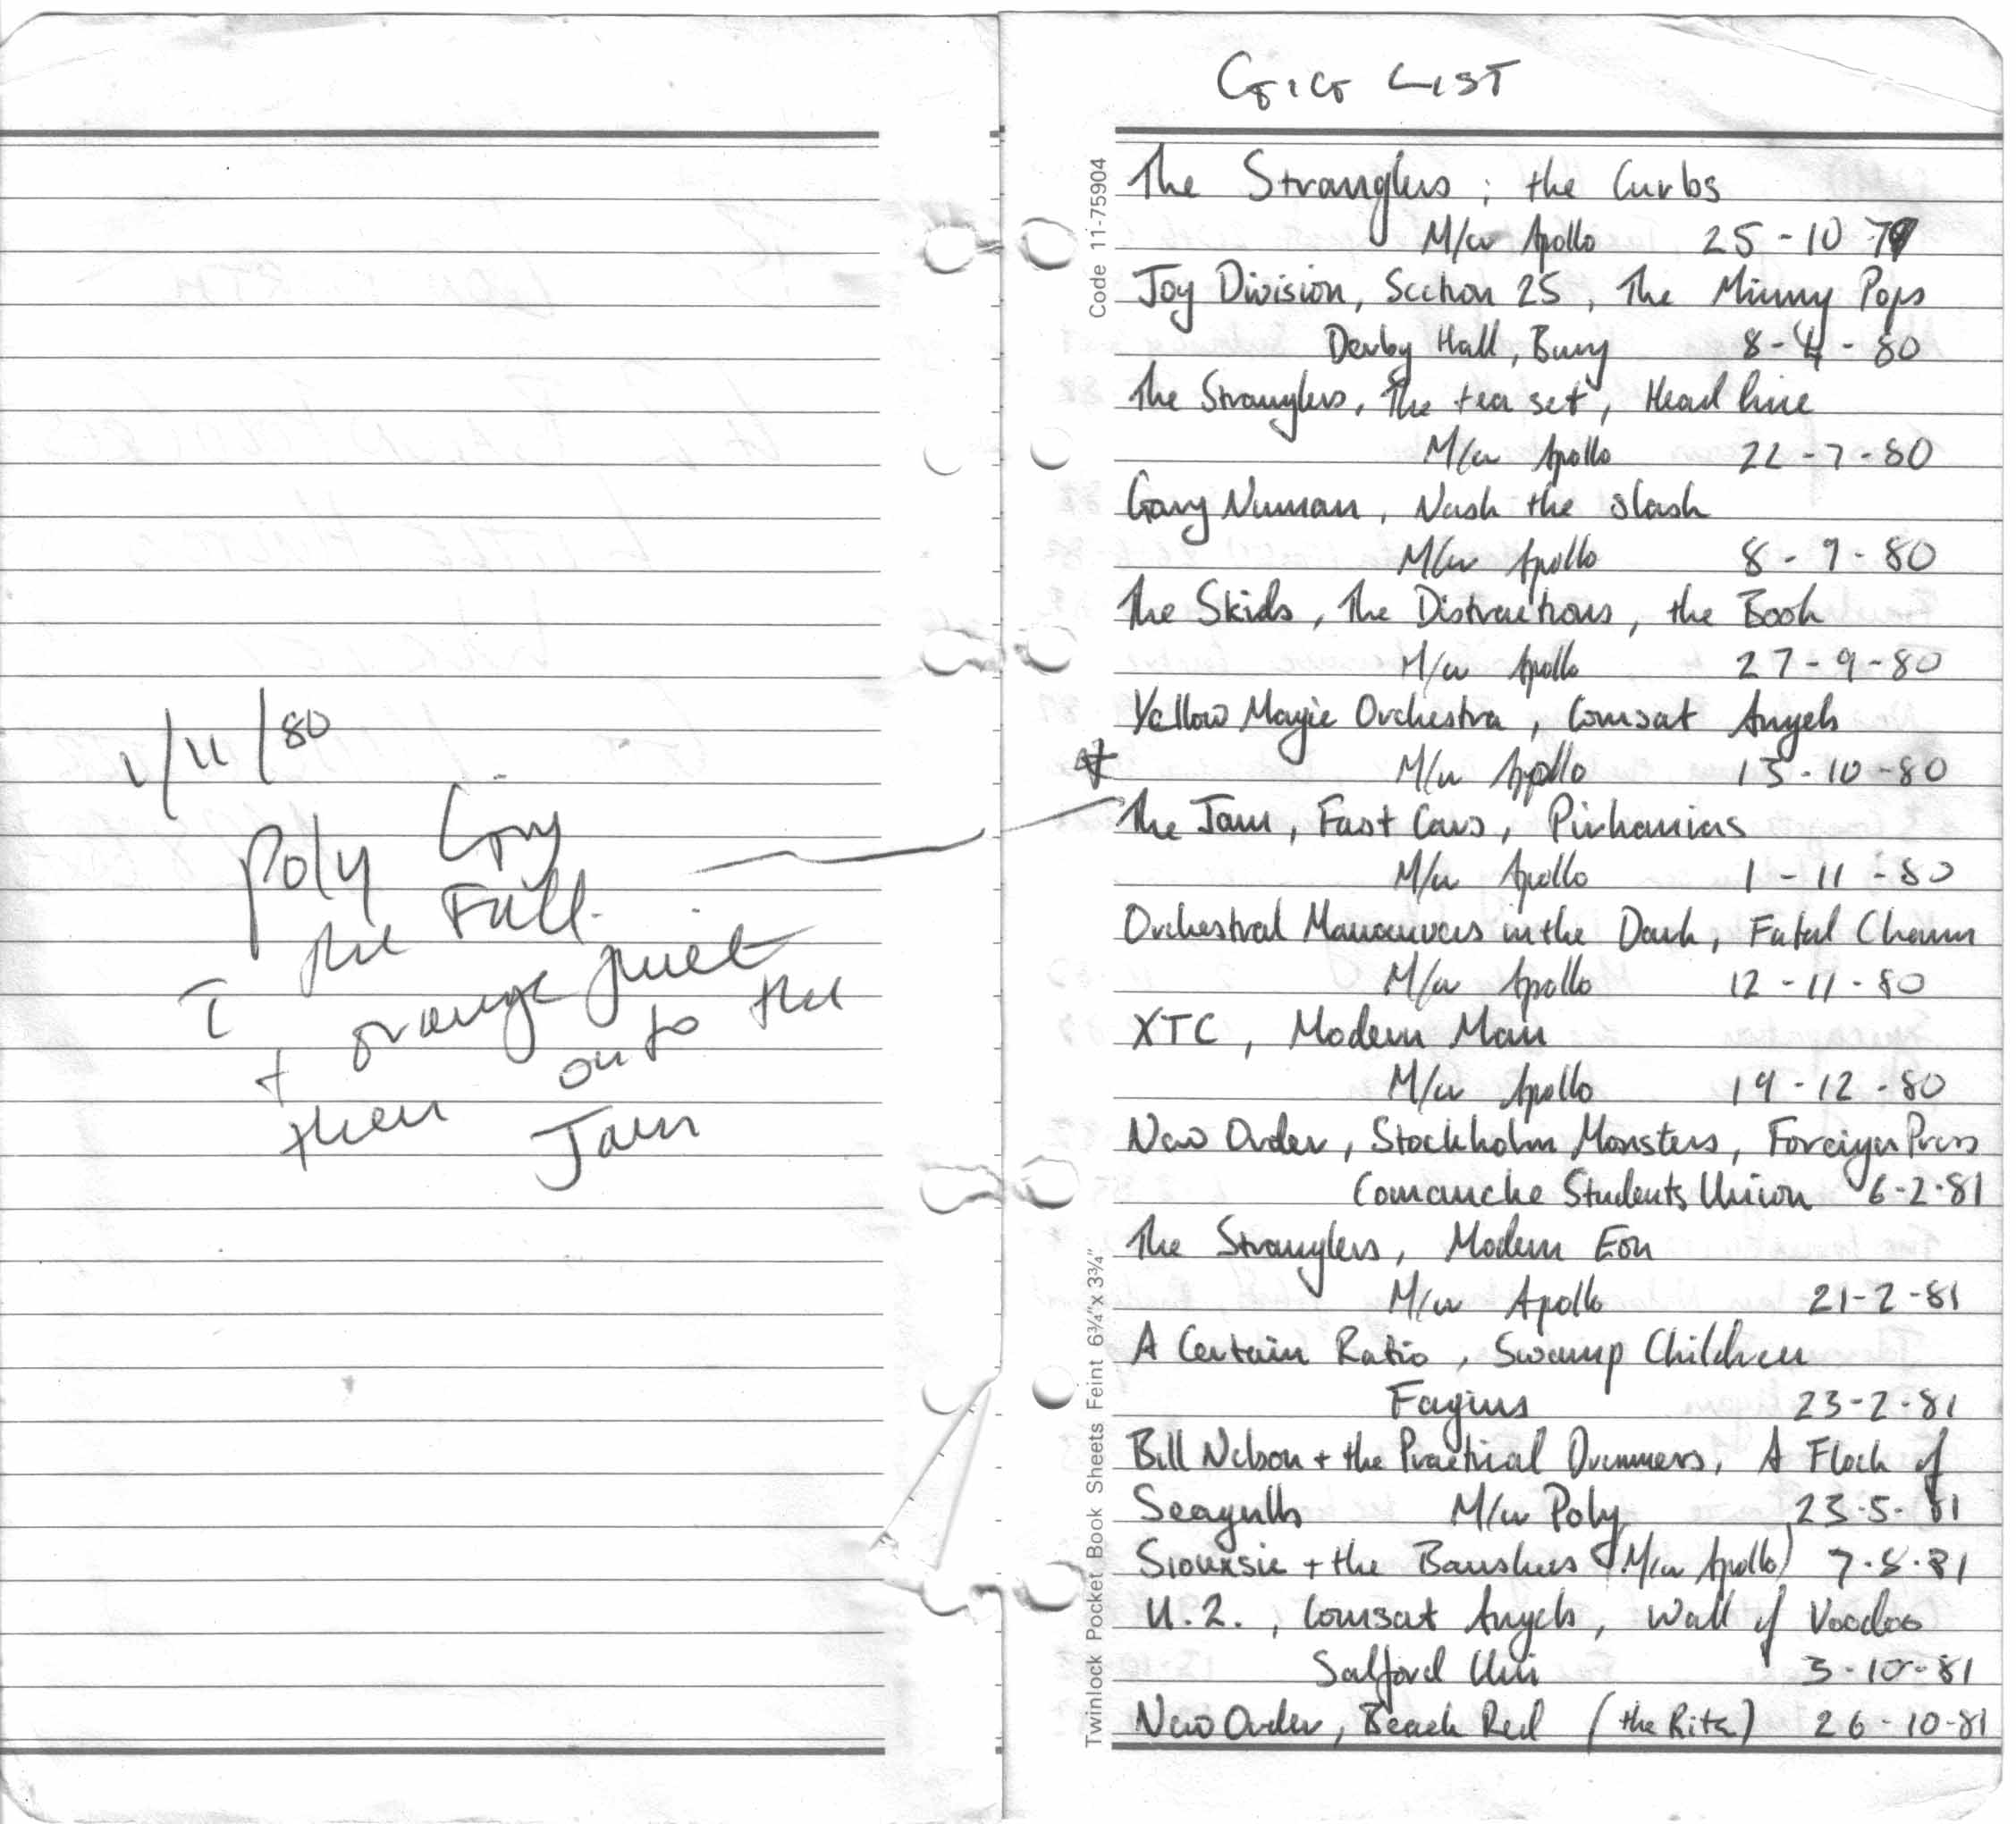 1/11/80
Poly Gry
The Fall
+ orange juice
then onto the
Jam
GIG LIST
The Stranglers; the Curbs
M/cr Apollo 25-10-79
Joy Division, Section 25, The Minny Pops
Derby Hall, Bury 8-4-80
The Stranglers, The tea set, Headline
M/cr Apollo 22-7-80
Gary Numan, Nash the slash
M/cr Apollo 8-9-80
The Skids, The Distractions, the Book
M/cr Apollo 27-9-80
Yellow Magic Orchestra, Comsat Angels
M/cr Apollo 13-10-80
The Jam, Fast Cars, Pirhanias
M/cr Apollo 1-11-80
Orchestral Manouvers in the Dark, Fatal Charm
M/cr Apollo 12-11-80
XTC, Modern Man
M/cr Apollo 19-12-80
New Order, Stockholm Monsters, Foreign Press
Comanche Students Union 6-2-81
The Stranglers, Modern Eon
M/cr Apollo 21-2-81
A Certain Ratio, Swamp Children
Fagins 23-2-81
Bill Nelson + the Practical Drummers, A Flock of
Seagulls M/cr Poly 23-5-81
Siouxsie + the Banshees (M/cr Apollo) 7-8-81
U.2., Comsat Angels, Wall of Voodoo
Salford Uni 3-10-81
New Order, Beach Red (the Ritz) 26-10-81
Code 11-75904
Twinlock Pocket Book Sheets Feint 6¾"x 3¾"